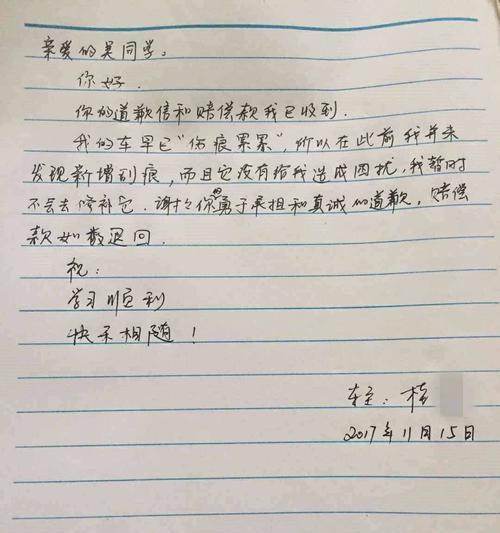 亲爱的吴同学：
你好.
你的道歉信和赔偿款我已收到.
我的车早已“伤痕累累”，所以在此前我并未
发现新增刮痕，而且它没有给我造成困扰，我暂时
不会去修补它.谢谢你的勇于承担和真诚的道歉，赔偿
款如数退回.
祝：
学习顺利
快乐相随！
车主：桂
2017年11月15日